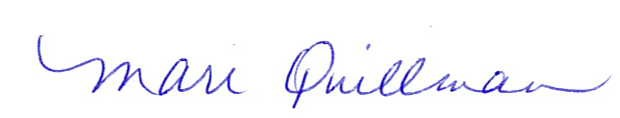 Mari Quillman